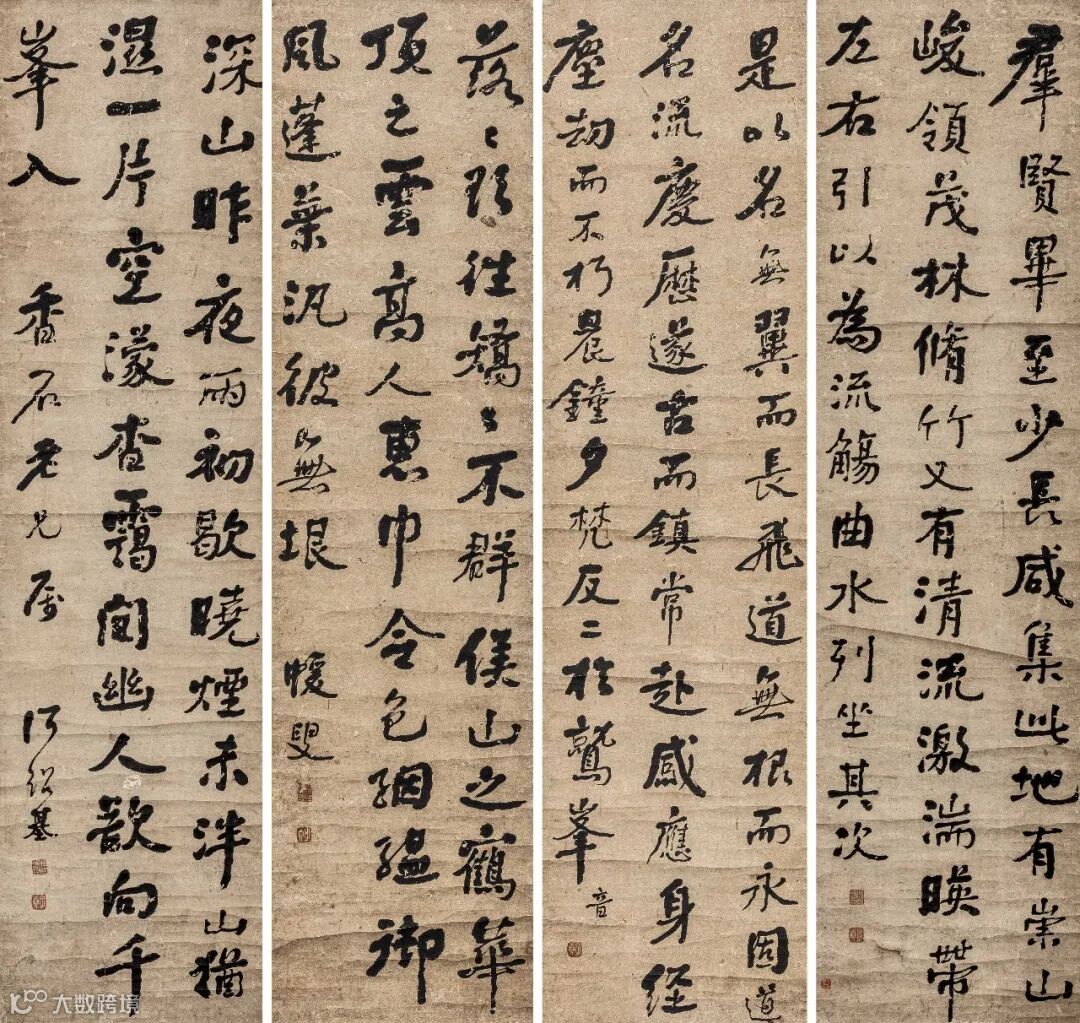 羣賢畢至少長咸集此地有崇山
峻領茂林脩竹又有清流激湍暎帶
左右引以為流觴曲水列坐其次
是以名無翼而長飛道無根而永固道
名流慶歷遂古而鎮常赴感應身经
塵劫而不朽晨鐘夕梵二於鷲峯 音
落〻欲往矯〻不群矦山之鶴華
頂之雲高人惠中令色絪緼御
風蓬葉汎彼無垠 暖叟
深山昨夜雨初歇曉煙未泮山猶
濕一片空濛杳靄間幽人歡向千
峯入 香石老兄屬 何紹基
大数跨境